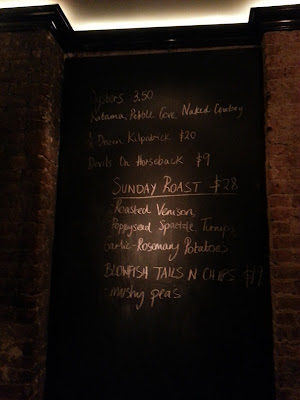 Oysters 3.50
Katama, Pebble Cove Naked Cowboy
½ Dozen Kilpatrick $20
Devils On Horseback $9
SUNDAY ROAST $28
Roasted Venison,
Poppyseed Spaetzle, Turnips
Garlic-Rosemary Potatoes
BLOWFISH TAILS N CHIPS $19
- mushy peas